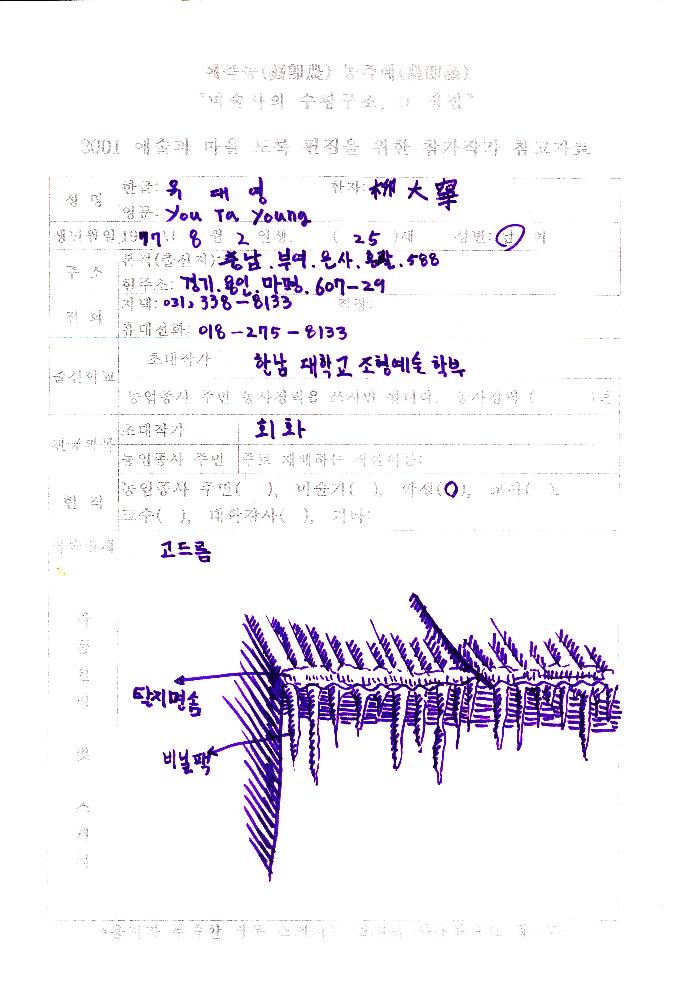 예즉농(藝卽農) 농즉예(農卽藝)
2001 예술과 마을 도록 편집을 위한 참가작가 참고자료
성 명 한글: 대 영 한자: 大
영문: You Ta Young
생년월일 1977년 8 월 2 일생. ( 25 )세 성별: 남 여
주 소 본적(출신지): 충남. 부여. 은산. 588
현주소: 경기. 용인. 마평. 607-29
전 화 자택: 031, 338-8133 직장:
휴대전화: 018-275-8133
출신학교 초대작가 한남 대학교 조형예술 학부
농업종사 주민 농사경력을 쓰시면 됩니다. 농사경력 ( )년
초대작가 회화
농업종사 주민 주로 재배하는
현 직 농업종사 주민( ), 미술가( ), 학생(O), 교사( ),
교수( ), 대학강사( ), 기타:
고드름
탈지면솜
비닐팩
작
품
설
명
및
스
케
치